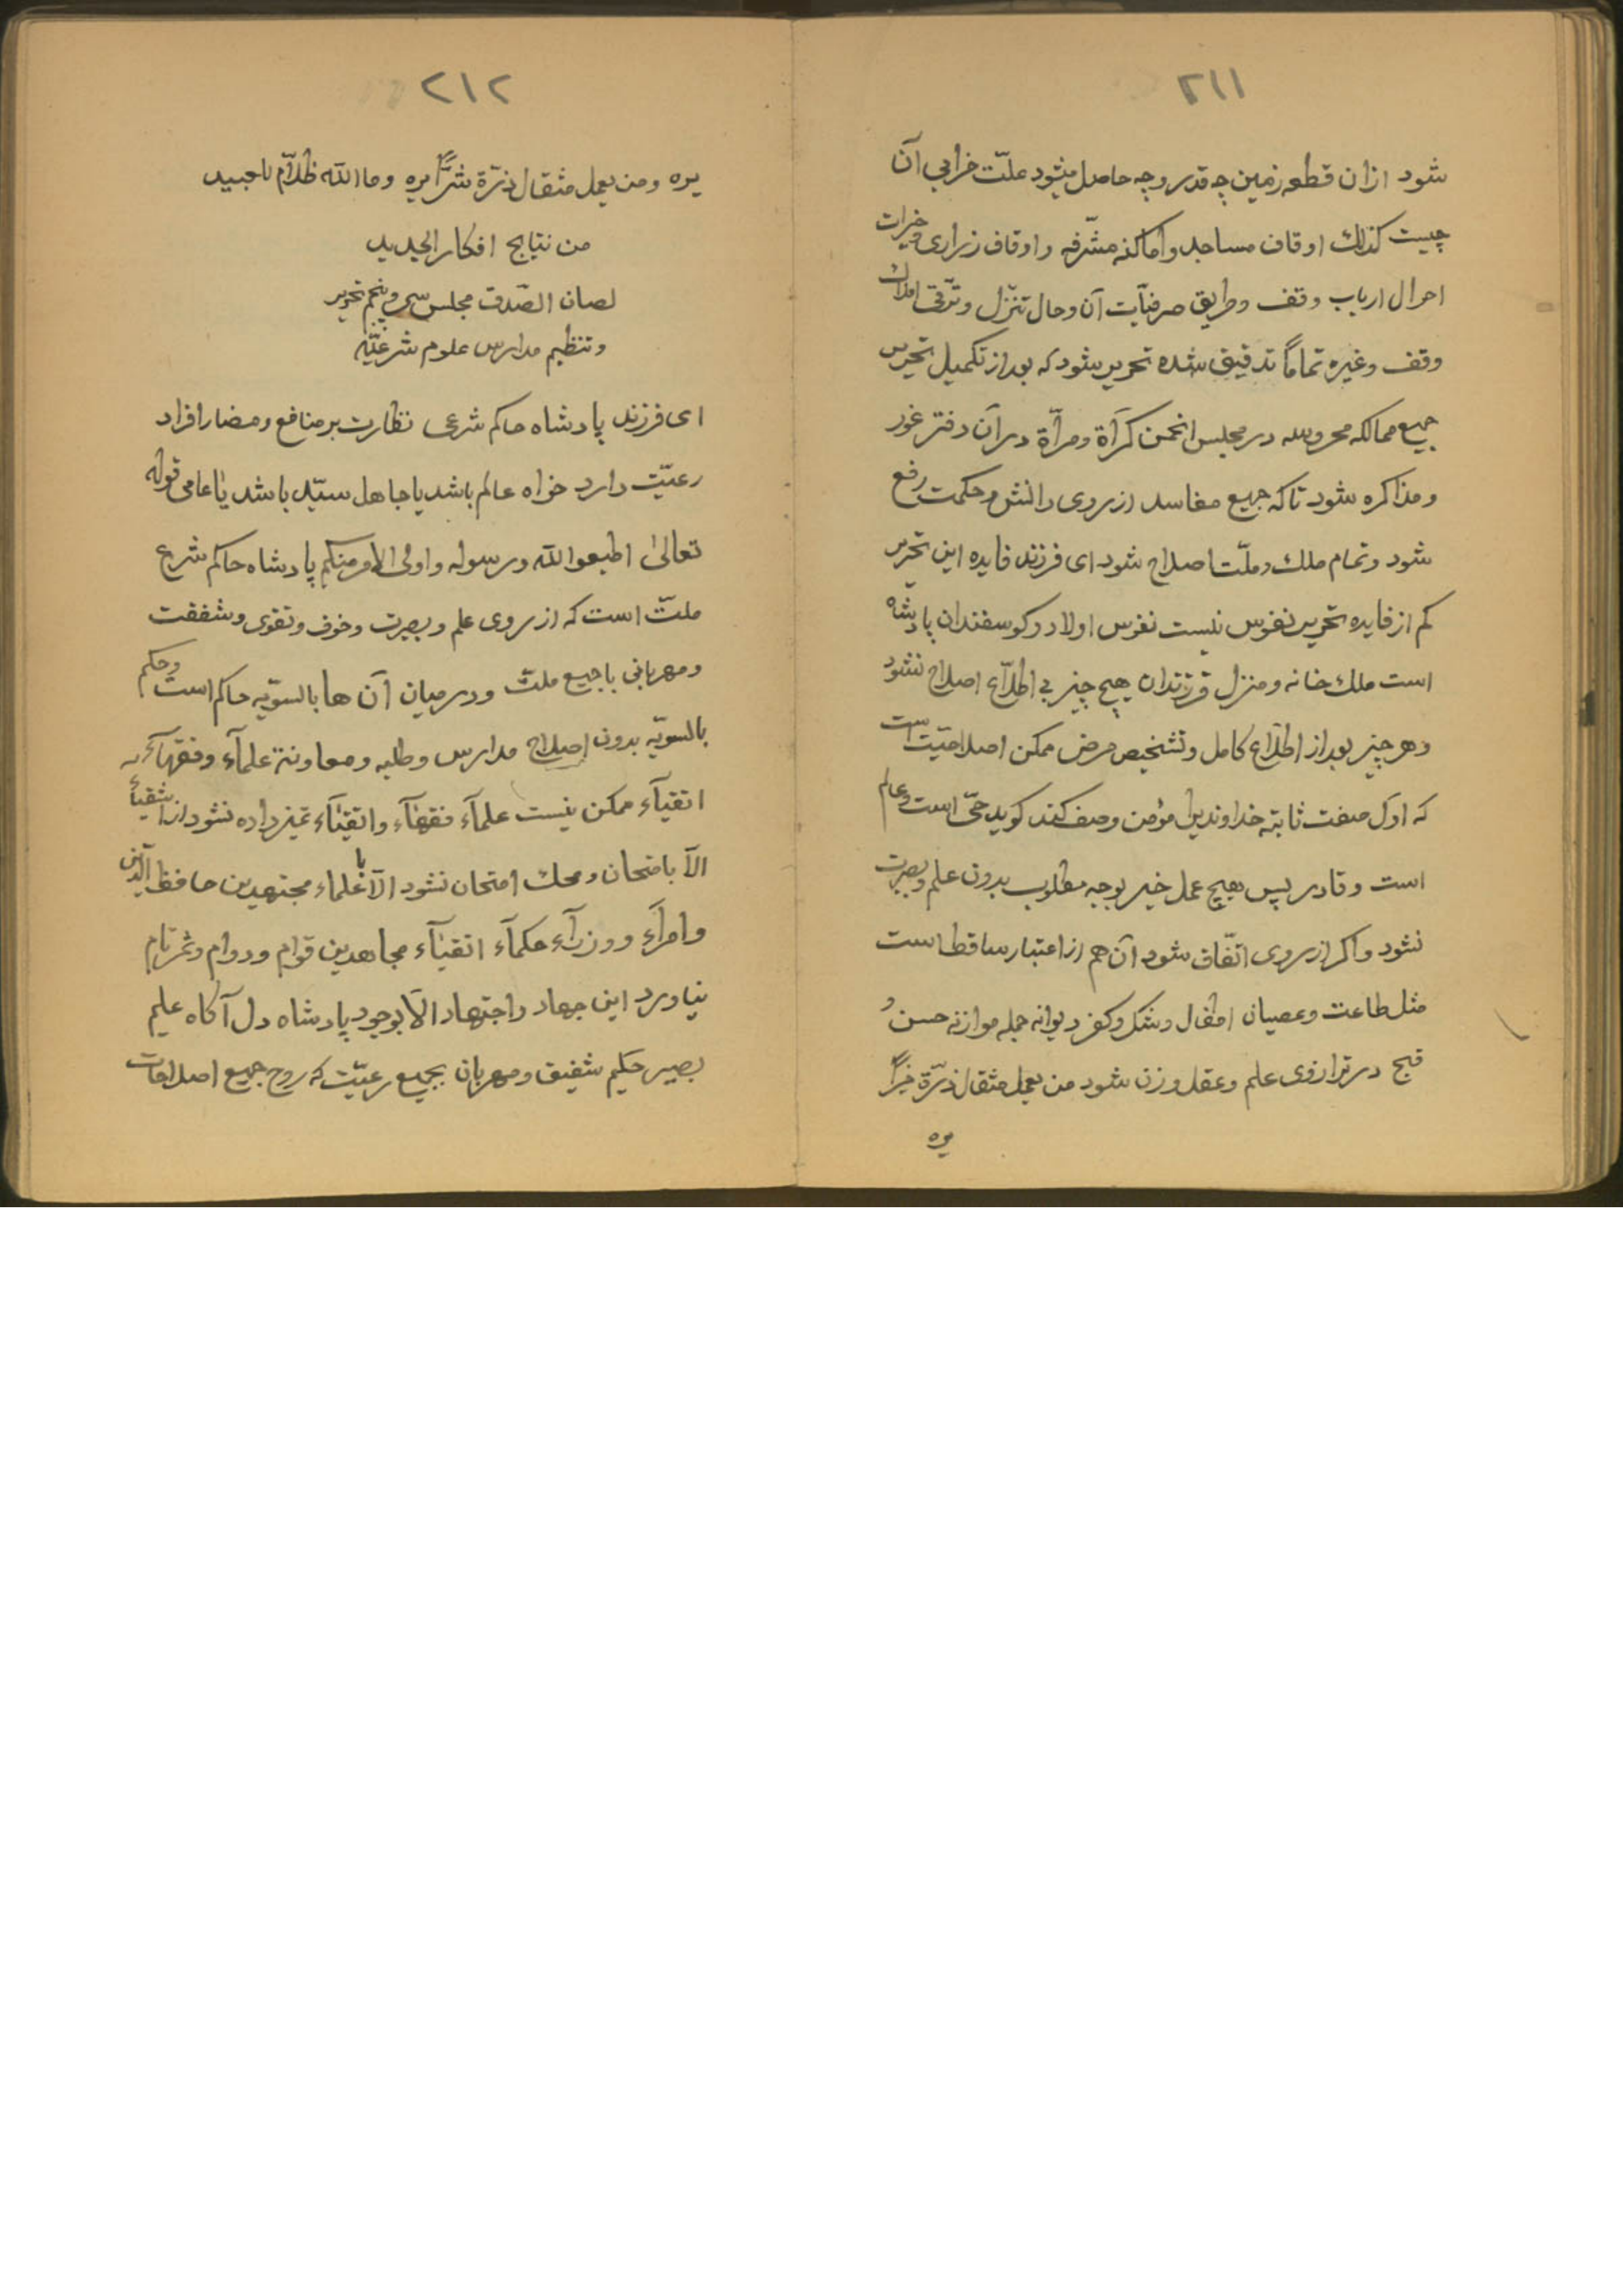 ٢١١
شود ازان قطعه زمین چه قدر وجه حاصل میشود علّت خرابی آن
چیست کذلك اوقاف مساجد وأماکنه مشرّفه واوقاف زراری وخیرات
احوال ارباب وقف وطریق صرفیّات آن وحال تنزّل وترّقی املاك
وقف وغیره تماماً تدقیق شده تحریر شود که بعد از تکمیل تحریر
جمیع ممالکه محروسه در مجلس انجمن کرّاة ومرآّة در آن دفتر غور
ومذاکره شود تا که جمیع مفاسد از روی دانش وحکمت رفع
شود وتمام ملك وملّت اصلاح شود ای فرزند فایده این تحریر
کم از فایده تحریر نفوس نیست نفوس اولاد وکوسفندان پادشاه
است ملك خانه ومنزل فرزندان هیچ چیز بی اطلاّع اصلاح نشود
وهر چیز بعد از اطلاّع کامل وتشخیص مرض ممکن اصلاحیّت است
که اوّل صفت ثابته خداوند یرا مؤمن وصف کند کوید حیّ است وعالم
است وقادر پس هیچ عمل خیر بوجه مطلوب بدون علم وبصیرت
نشود واکر از روی اتفّاق شود آن هم از اعتبار ساقط است
مثل طاعت وعصیان اطفال وشکر وکفر دیوانه جمله موازنه حسن و
قبح در ترازوی علم وعقل وزن شود من یعمل مثقال ذرّة خیراً
یره
٢١٢
یره ومن یعمل مثقال ذرّة شرّاً یره وما الله ظلاّم للعبید
من نتایج افکار الجدید
لصان الصّدق مجلس سی وپنجم تحریر
وتنظیم مدارس علوم شرعیّه
ای فرزند پادشاه حاکم شرعی نظارت بر منافع ومضار افراد
رعیّت دارد خواه عالم باشد یا جاهل سیّد باشد یا عامی قوله
تعالیٰ اطیعوا الله ورسوله واولی الامر منکم پادشاه حاکم شرع
ملّت است که از روی علم وبصیرت وخوف وتقوی وشفقت
ومهربانی با جمیع ملّت ودر میان آن ها بالسّویّه حاکم است وحکم
بالسویّه بدون اصلاح مدارس وطلبه ومعاونة علمآء وفقهآء
اتقیآء ممکن نیست علمآء فقهآء واتقیٰآء تمیز داده نشود از اشقیآء
الاّ بامتحان ومحك امتحان نشود الاّ با علماء مجتهدین حافظ الدّین
وامرآء ووزرآء حکمآء اتقیٰآء مجاهدین قوّام ودوام وثمر تام
نیاورد این جهاد واجتهاد الاّ بوجود پادشاه دل آکاه علیم
بصیر حکیم شفیق ومهربان بجمیع رعیّت که روح جمیع اصلاحات